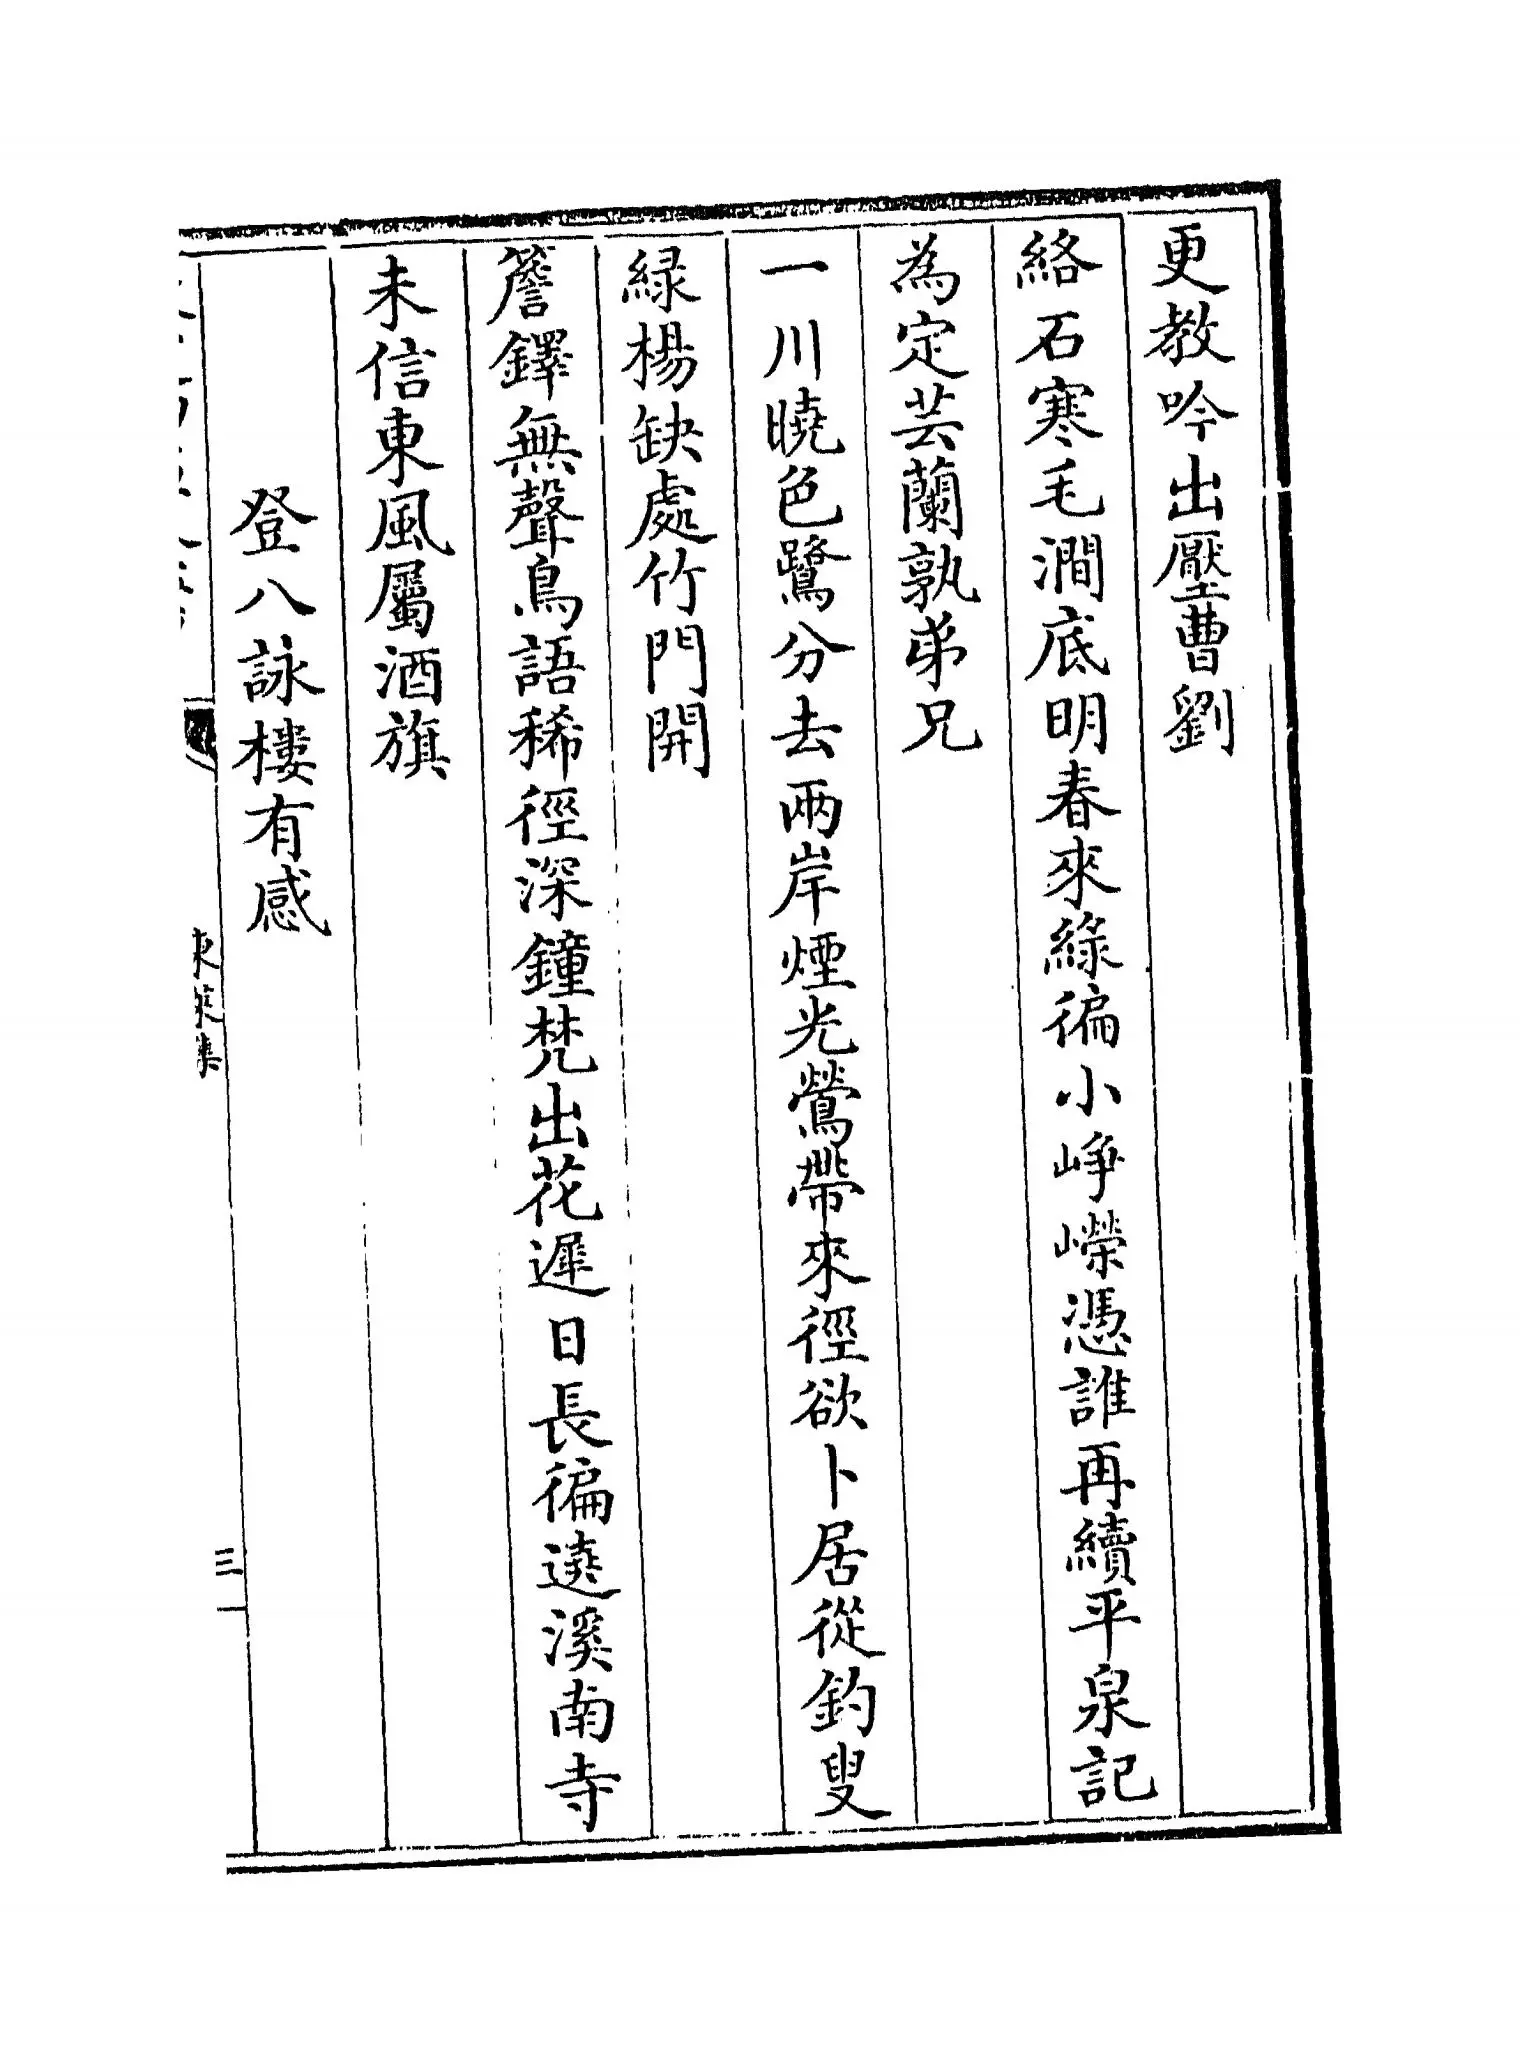 更教吟出壓曹劉
絡石寒毛澗底明春來綠徧小崢嶸憑誰再續平泉記
為定芸蘭孰弟兄
一川曉色鷺分去兩岸煙光鶯帶來徑欲卜居從釣叟
緑楊缺處竹門開
簷鐸無聲鳥語稀徑深鐘梵出花遲日長徧遶溪南寺
未信東風屬酒旗
登八詠樓有感
東萊集
三